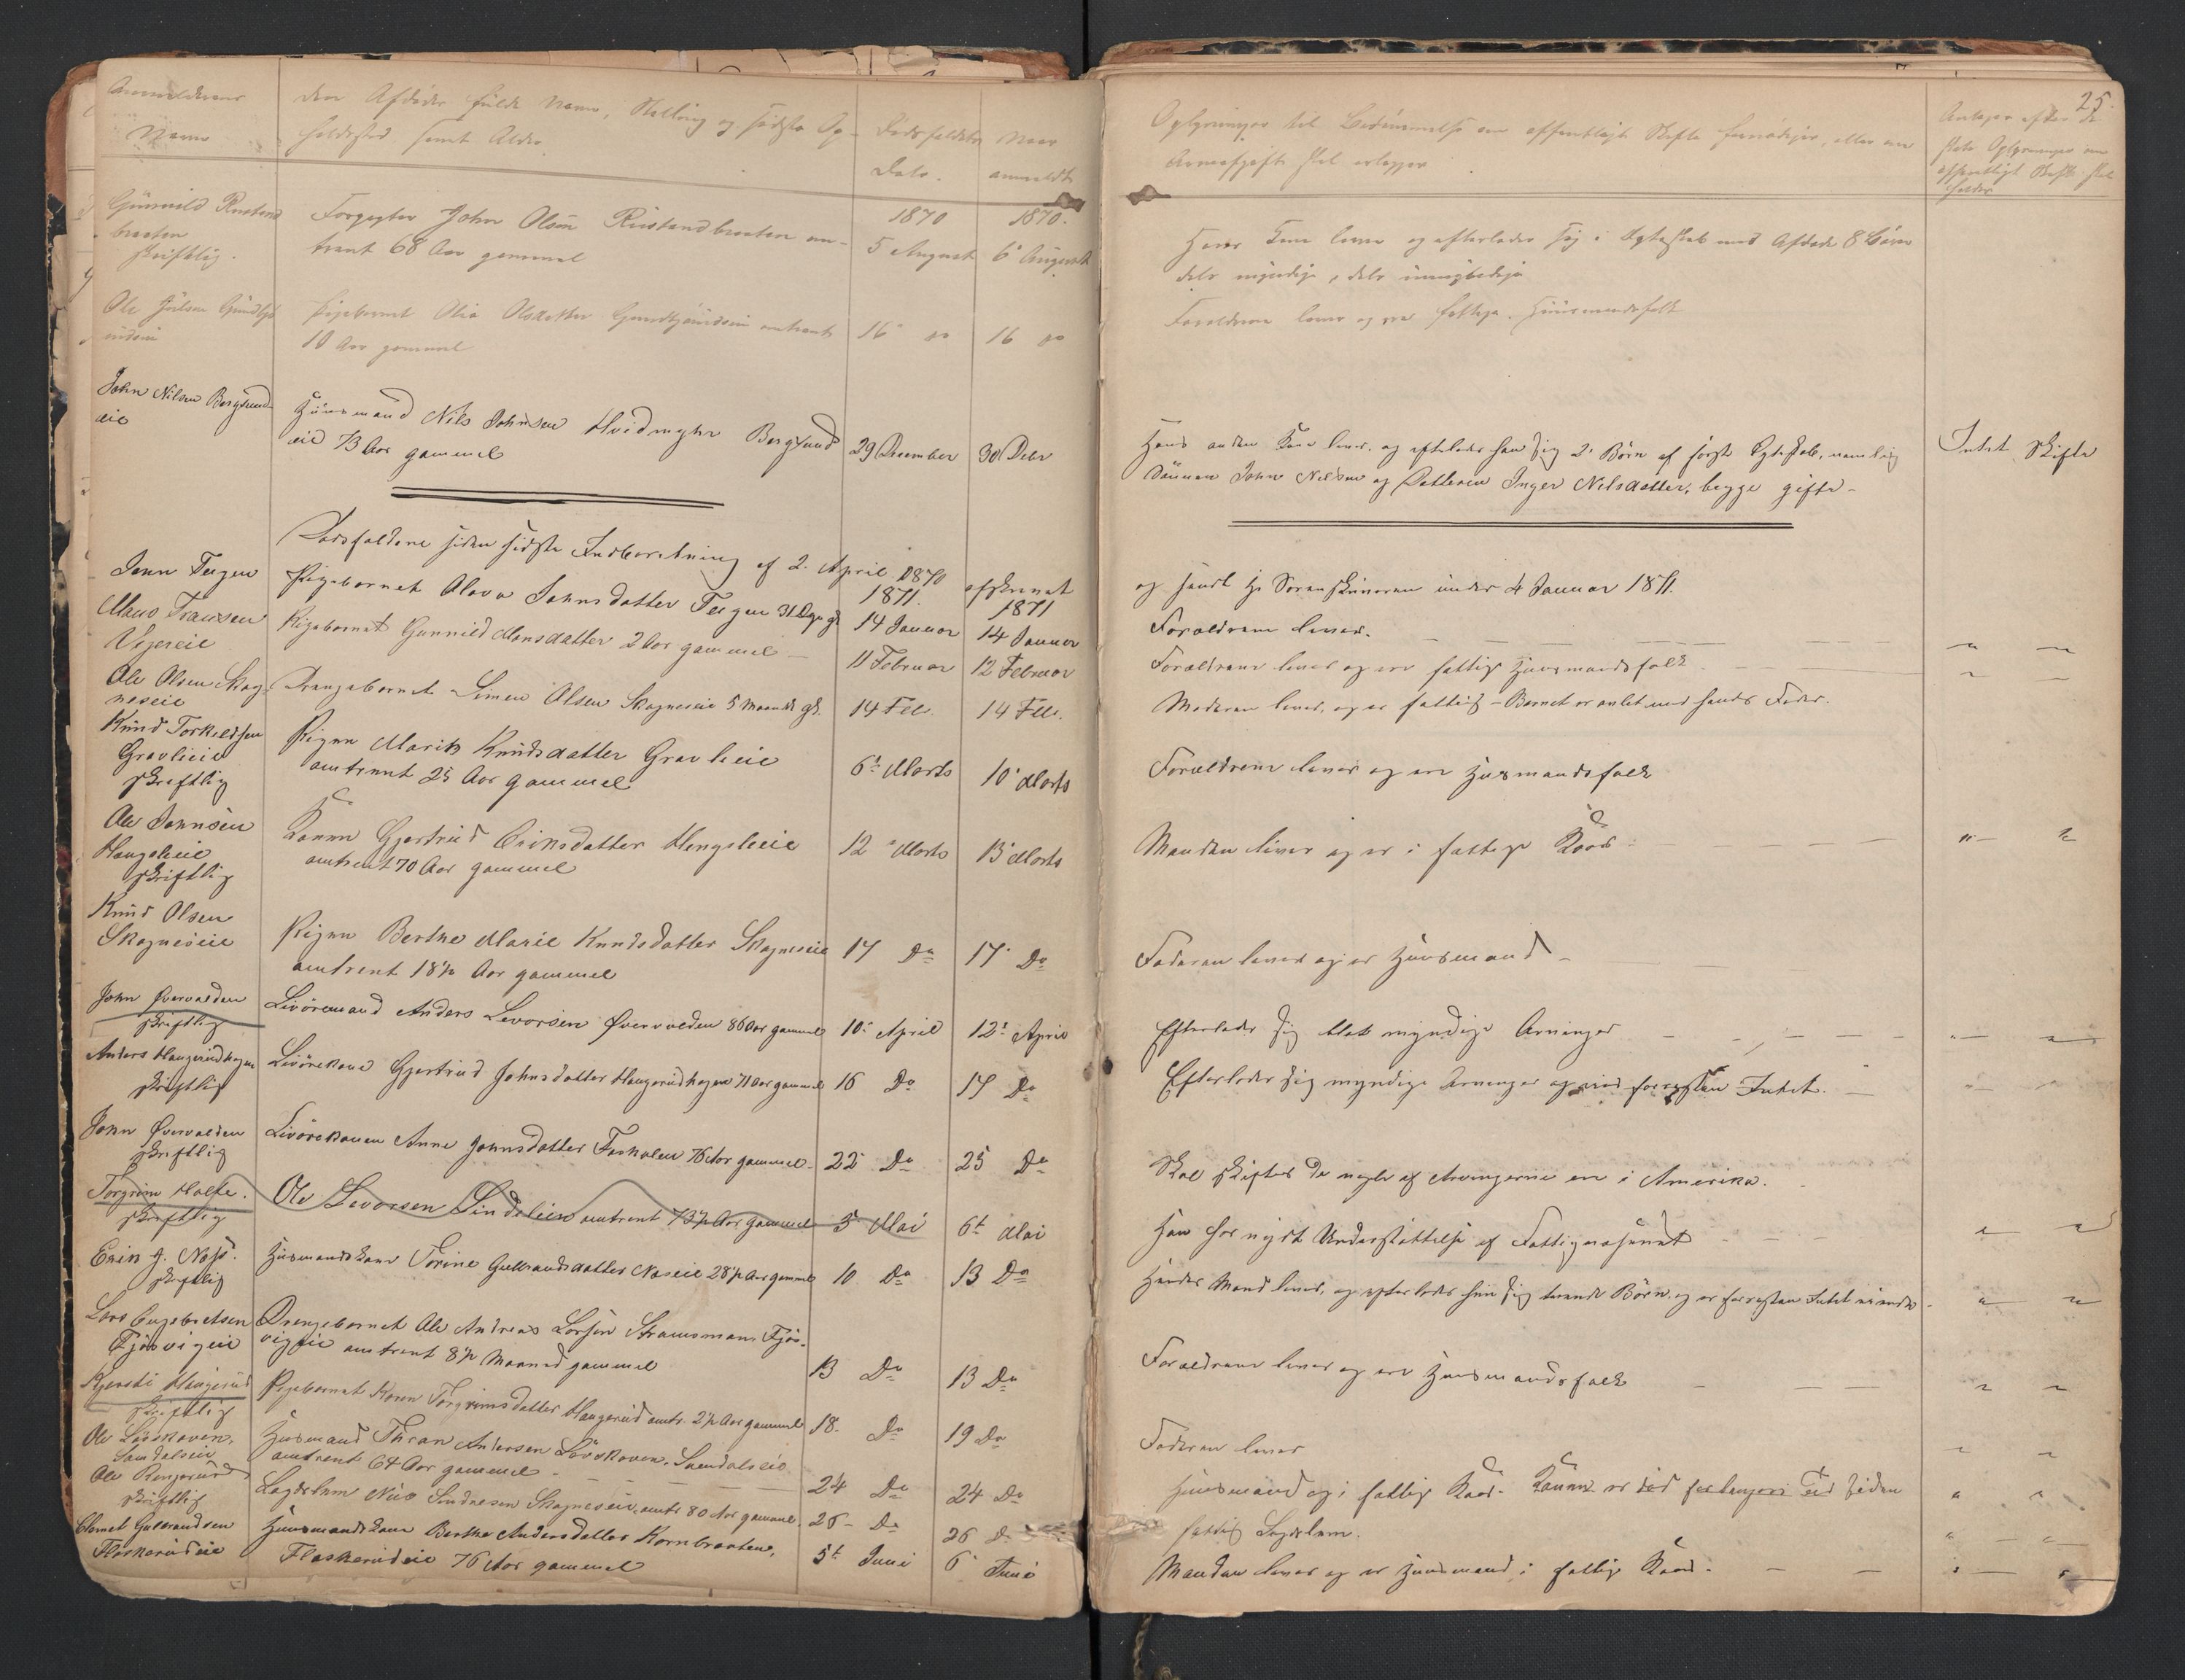 Anmelderens
Navn
den Afdødes fulde Navn, Stilling og sidste Op-
holdssted samt Alder
Dødsfaldets
Dato.
Naar
anmeldt
Gunnild Rustand
braaten
skriftlig.
Forpagter John Olsen Rustandbraaten om-
trent 68 Aar gammel
1870
5 August
1870.
6 August
Ole
Pigebarnet Olia Olsdatter omtrent
10 Aar gammel
16 do
16 do
John Nilsen Bergsund
eie
Huusmand Nils Johnsen Hvidmyhr Bergsund
eie 73 Aar gammel
29 December
30 Debr
Dødsfaldene siden sidste Indberetning af 2. April 1870 afskrevet
1871
1871
Pigebarnet Olava Johnsdatter Teigen 31 Dage gl
14 Januar
14 Januar
Mans Fransen
Vejereie
Pigebarnet Gunnild Mansdatter 2 Aar gammel
11 Februar
12 Februar
Ole Olsen Skag-
neseie
Drengebarnet Simen Olsen Skagneseie 5 Maaneder gl.
14 Feb.
14 Feb.
Knud Torkildsen
Gravlieie
skriftlig
Pigen Marith Knudsdatter Gravlieie
omtrent 25 Aar gammel
6t Marts
10 Marts
Ole Johnsen
Hengsleeie
skriftlig
Konen Gjertrud Eriksdatter Hengsleeie
omtrent 70 Aar gammel
12 Marts
13 Marts
Knud Olsen
Skagneseie
Pigen Berthe Marie Knudsdatter Skagneseie
omtrent 18½ Aar gammel
17 Do
17 Do
John Øvervolden
skriftlig
Livøremand Anders Levorsen Øvervolden 86 Aar gammel
10 April
12 April
Anders Haugerudhagen
skriftlig
Livørekone Gjertrud Johnsdatter Haugerudhagen 71 Aar gammel
16 Do
17 Do
John Øvervolden
skriftlig
Livørekonen Anne Johnsdatter 76 Aar gammel
22 Do
25 Do
Torgrim Halfe.
skriftlig
Ole Levorsen Lindelien omtrent 73½ Aar gammel
5 Mai
6t Mai
Erik J. Næss.
skriftlig
Husmandskone Torine Gulbrandsdatter Næseie 28½ Aar gammel
10 Do
13 Do
Lars Engebretsen
Fjøsvigeie
Drengebarnet Ole Andreas Larsen Fjøs-
vigeie omtrent 8½ Maaned gammel
13 Do
13 Do
Kjersti Haugerud
skriftlig
Pigebarnet Karen Torgrimsdatter Haugerud omtr. 2½ Aar gammel
18 Do
19 Do
Ole Løvskoven.
Husmand Andersen Løvskoven.
omtrent 64 Aar gammel
24 Do
24 Do
Ole Ringerud
skriftlig
Lægdslem Nils Sindresen Skagneseie, omtr 80 Aar gammel
26 Do
26 Do
Clemet Gulbrandsen
Flaskerudeie
Huusmandskone Berthe Andersdatter Kornbraaten,
Flaskerudeie 76 Aar gammel
5t Juni
6 Juni
25.
Oplysninger til Bedømmelse om offentligt Skifte fornødiges, eller om
Arveafgift skal erlægges
Antages efter de
skete Oplysninger om
offentligt Skifte skal
holdes
Hans Kone lever og efterlader sig i Ægteskab med Afdøde 8 Børn
dels myndige, dels umyndige
Forældrene lever og ere fattige Huusmandsfolk
Hans anden Kone lever, og efterlader han sig 2 Børn af første Ægteskab, nemlig
Sønnen John Nilsen og Datteren Inger Nilsdatter, begge gifte -
Intet Skifte
og sendt Hr Sorenskriveren under 4 Januar 1871.
Forældrene lever.
Forældrene lever og ere fattige Huusmandsfolk
Moderen lever, og er fattig - Barnet er avlet med hendes Fader.
Forældrene lever og ere Husmandsfolk
Manden lever og er i fattige Kaar
Faderen lever og er Huusmand -
Efterlader sig blot myndige Arvinger
Efterlader sig myndige Arvinger og forresten Intet.
Skal skiftes Da nogle af Arvingerne ere i Amerika.
Han har nydt Understøttelse af Fattigvæsenet
Hendes Mand lever, og efterlader hun sig Børn og er forresten Intet
Forældrene lever og ere Huusmandsfolk
Faderen lever
Huusmand og i fattige Kaar. Konen er død for lengere Tid siden
fattig Lægdslem.
Manden lever og er Huusmand i fattige Kaar.